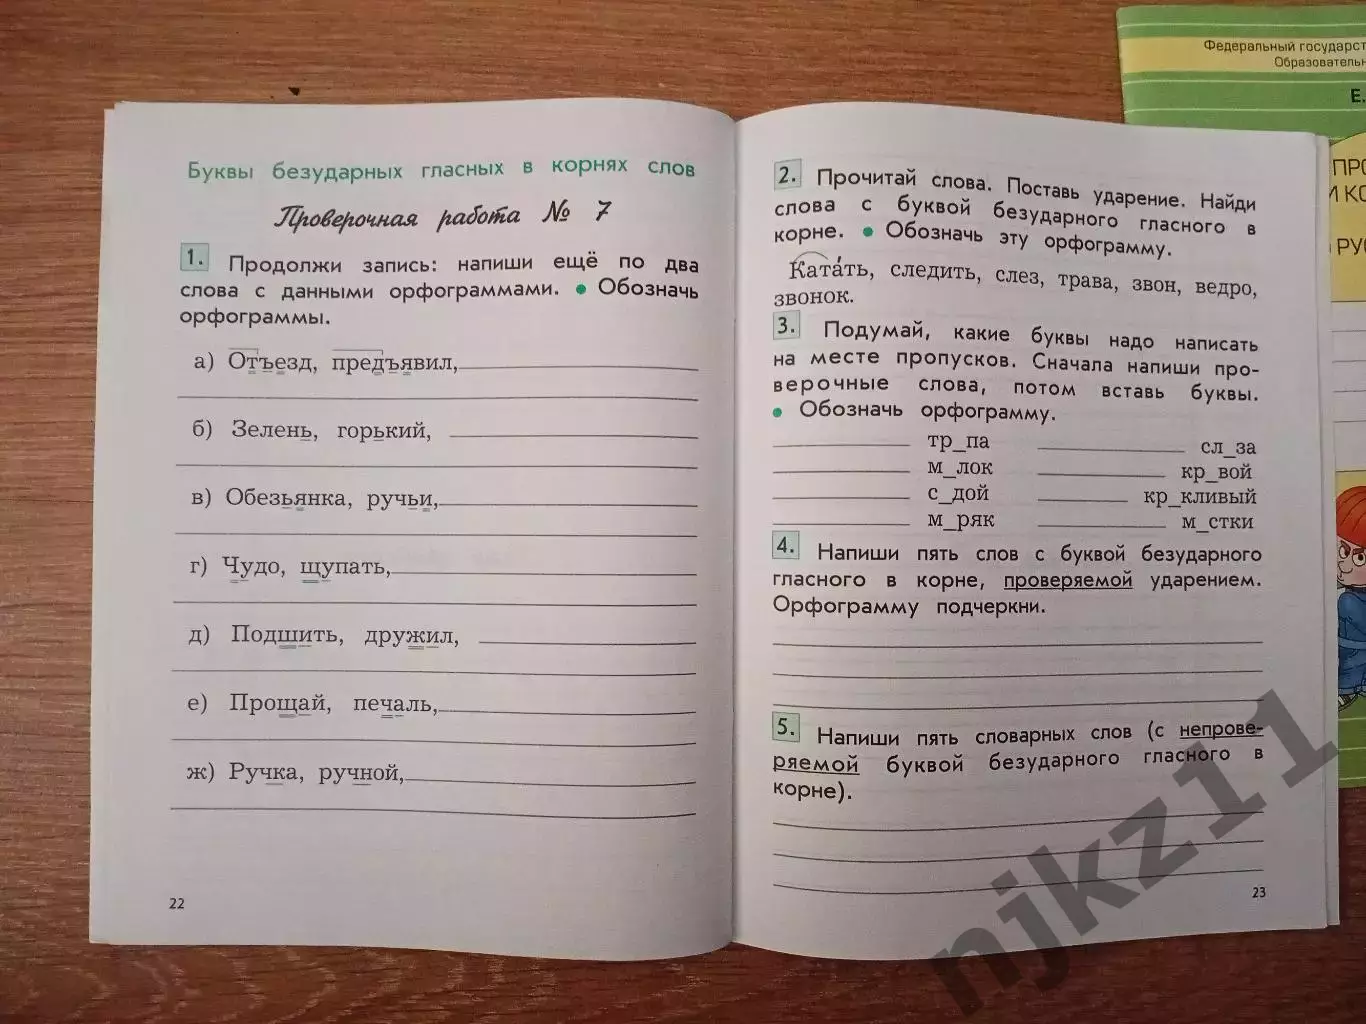 Буквы безударных гласных в корнях слов
Проверочная работа № 7
1. Продолжи запись: напиши ещё по два
слова с данными орфограммами. • Обозначь
орфограммы.
а) Отъезд, предъявил,
б) Зелень, горький,
в) Обезьянка, ручьи,
г) Чудо, щупать,
д) Подшить, дружил,
е) Прощай, печаль,
ж) Ручка, ручной,
22
2. Прочитай слова. Поставь ударение. Найди
слова с буквой безударного гласного в
корне. • Обозначь эту орфограмму.
Ката́ть, следить, слез, трава, звон, ведро,
звонок.
3. Подумай, какие буквы надо написать
на месте пропусков. Сначала напиши про-
верочные слова, потом вставь буквы.
• Обозначь орфограмму.
тр_па сл_за
м_лок кр_вой
с_дой кр_кливый
м_ряк м_стки
4. Напиши пять слов с буквой безударного
гласного в корне, проверяемой ударением.
Орфограмму подчеркни.
5. Напиши пять словарных слов (с непрове-
ряемой буквой безударного гласного в
корне).
23
Федеральный государст
Образовательн
Е.
ПРО
И КО
РУС
njkz11